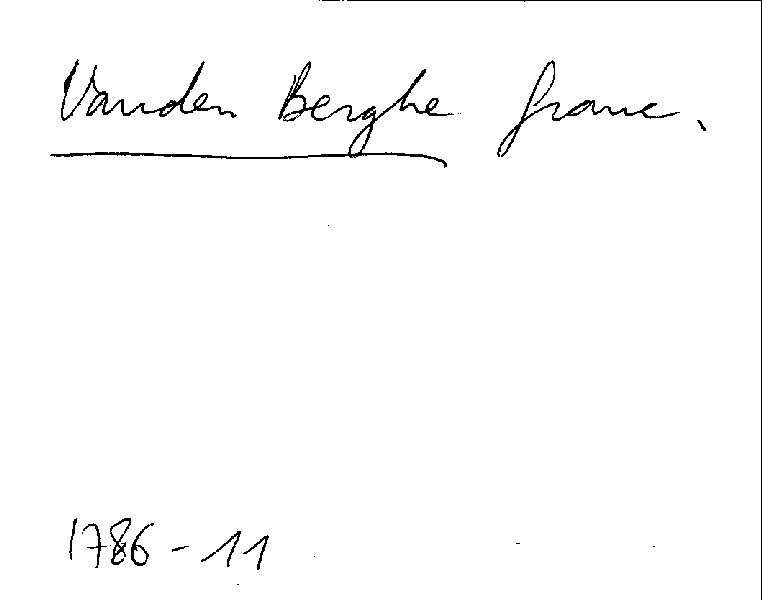 Vanden Berghe franc.
1786-11